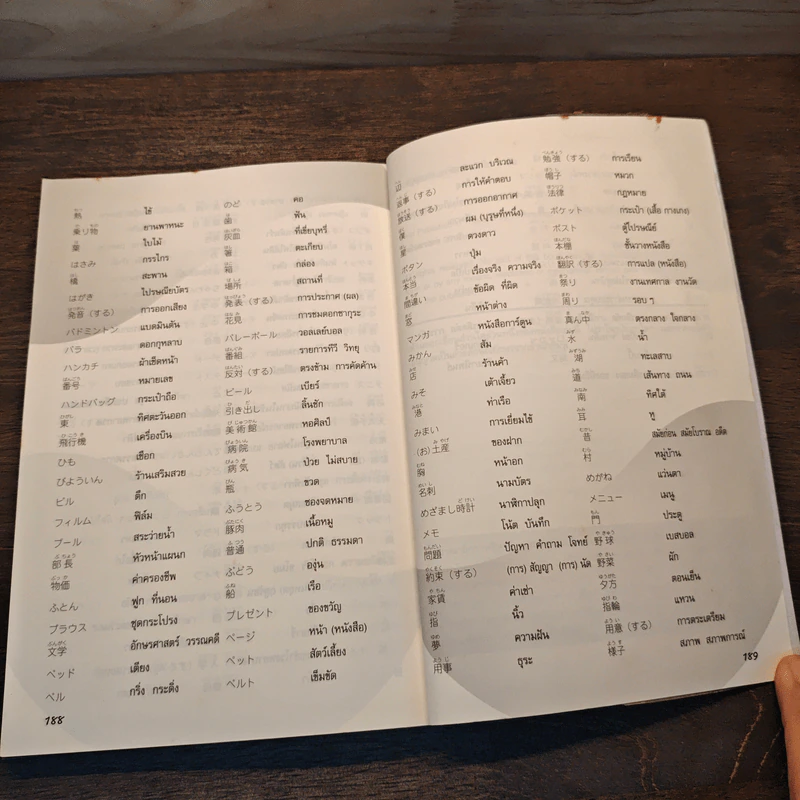 熱 ไข้
乗り物 ยานพาหนะ
葉 ใบไม้
はさみ กรรไกร
橋 สะพาน
はがき ไปรษณียบัตร
発音（する） การออกเสียง
バドミントン แบดมินตัน
バラ ดอกกุหลาบ
ハンカチ ผ้าเช็ดหน้า
番号 หมายเลข
ハンドバッグ กระเป๋าถือ
東 ทิศตะวันออก
飛行機 เครื่องบิน
ひも เชือก
びよういん ร้านเสริมสวย
ビル ตึก
フィルム ฟิล์ม
プール สระว่ายน้ำ
部長 หัวหน้าแผนก
物価 ค่าครองชีพ
ふとん ฟูก ที่นอน
ブラウス ชุดกระโปรง
文学 อักษรศาสตร์ วรรณคดี
ベッド เตียง
ベル กริ่ง กระดิ่ง
188
のど คอ
歯 ฟัน
灰皿 ที่เขี่ยบุหรี่
箸 ตะเกียบ
箱 กล่อง
場所 สถานที่
発表（する） การประกาศ (ผล)
花見 การชมดอกซากุระ
バレーボール วอลเลย์บอล
番組 รายการทีวี วิทยุ
反対（する） ตรงข้าม การคัดค้าน
ビール เบียร์
引き出し ลิ้นชัก
美術館 หอศิลป์
病院 โรงพยาบาล
病気 ป่วย ไม่สบาย
瓶 ขวด
ふうとう ซองจดหมาย
豚肉 เนื้อหมู
普通 ปกติ ธรรมดา
ぶどう องุ่น
船 เรือ
プレゼント ของขวัญ
ページ หน้า (หนังสือ)
ペット สัตว์เลี้ยง
ベルト เข็มขัด
ละแวก บริเวณ
返事（する） การให้คำตอบ
放送（する） การออกอากาศ
僕 ผม (บุรุษที่หนึ่ง)
星 ดวงดาว
ボタン ปุ่ม
本当 เรื่องจริง ความจริง
間違い ข้อผิด ที่ผิด
窓 หน้าต่าง
マンガ หนังสือการ์ตูน
みかん ส้ม
店 ร้านค้า
みそ เต้าเจี้ยว
港 ท่าเรือ
みまい การเยี่ยมไข้
(お)土産 ของฝาก
胸 หน้าอก
名刺 นามบัตร
めざまし時計 นาฬิกาปลุก
メモ โน้ต บันทึก
問題 ปัญหา คำถาม โจทย์
約束（する） (การ) สัญญา (การ) นัด
家賃 ค่าเช่า
指 นิ้ว
夢 ความฝัน
用事 ธุระ
勉強（する） การเรียน
帽子 หมวก
法律 กฎหมาย
ポケット กระเป๋า (เสื้อ กางเกง)
ポスト ตู้ไปรษณีย์
本棚 ชั้นวางหนังสือ
翻訳（する） การแปล (หนังสือ)
祭り งานเทศกาล งานวัด
周り รอบ ๆ
真ん中 ตรงกลาง ใจกลาง
水 น้ำ
湖 ทะเลสาบ
道 เส้นทาง ถนน
南 ทิศใต้
耳 หู
昔 สมัยก่อน สมัยโบราณ อดีต
村 หมู่บ้าน
めがね แว่นตา
メニュー เมนู
門 ประตู
野球 เบสบอล
野菜 ผัก
夕方 ตอนเย็น
指輪 แหวน
用意（する） การตระเตรียม
様子 สภาพ สภาพการณ์
189